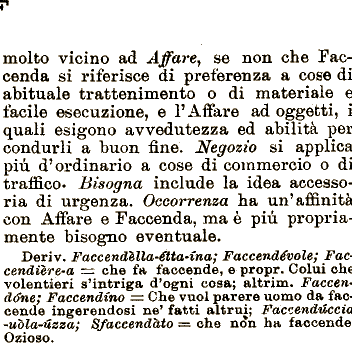 molto vicino ad Affare, se non che Fac-
cenda si riferisce di preferenza a cose di
abituale trattenimento o di materiale e
facile esecuzione, e l'Affare ad oggetti, i
quali esigono avvedutezza ed abilità per
condurli a buon fine. Negozio si applica
piú d'ordinario a cose di commercio o di
traffico. Bisogna include la idea accesso-
ria di urgenza. Occorrenza ha un'affinità
con Affare e Faccenda, ma è piú propria-
mente bisogno eventuale.
Deriv. Faccendèlla-étta-ína; Faccendévole; Fac-
cendière-a = che fa faccende, e propr. Colui che
volentieri s'intriga d'ogni cosa; altrim. Faccen-
dóne; Faccendíno = Che vuol parere uomo da fac-
cende ingerendosi ne' fatti altrui; Faccendúccia
-uòla-úzza; Sfaccendàto = che non ha faccende
Ozioso.